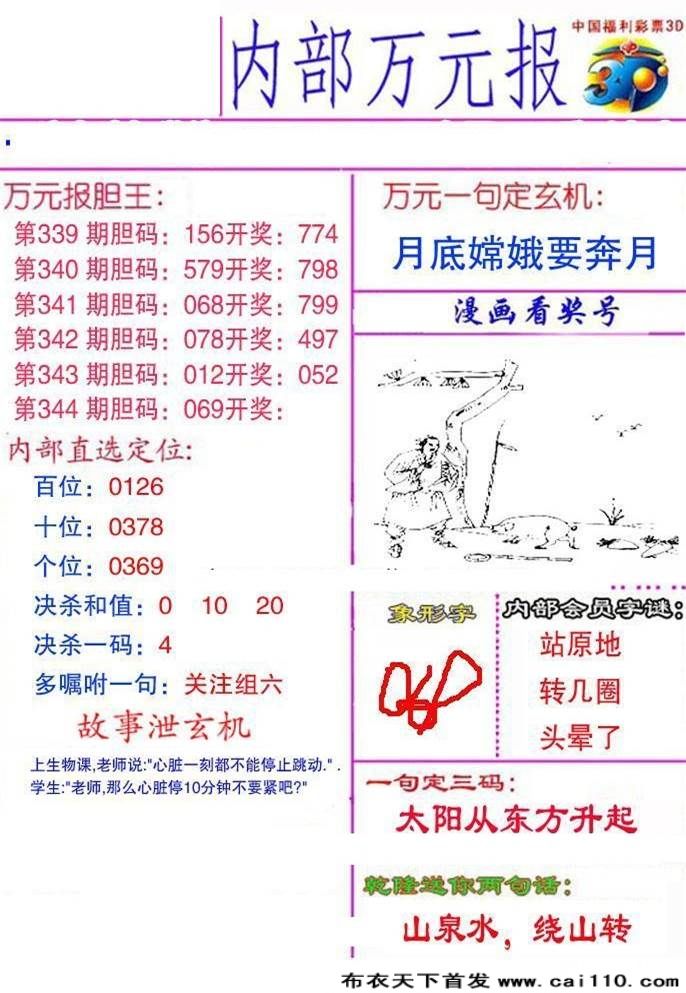 内部万元报
中国福利彩票3D
3D
万元报胆王:
第339 期胆码: 156开奖: 774
第340 期胆码: 579开奖: 798
第341 期胆码: 068开奖: 799
第342 期胆码: 078开奖: 497
第343 期胆码: 012开奖: 052
第344 期胆码: 069开奖:
内部直选定位:
百位: 0126
十位: 0378
个位: 0369
决杀和值: 0 10 20
决杀一码: 4
多嘱咐一句: 关注组六
故事泄玄机
上生物课,老师说:"心脏一刻都不能停止跳动." .
学生:"老师,那么心脏停10分钟不要紧吧?"
万元一句定玄机:
月底嫦娥要奔月
漫画看奖号
象形字
内部会员字谜:
站原地
转几圈
头晕了
一句定三码:
太阳从东方升起
乾隆送你两句话:
山泉水，绕山转
布衣天下首发 www.cai110.com